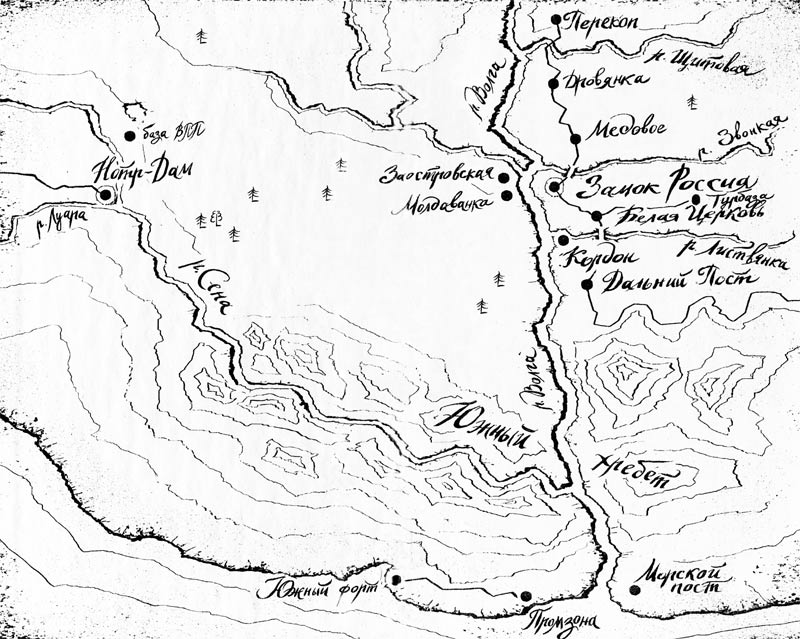 Перекоп
р. Щитовая
р. Волга
Дровянка
Медовое
р. Звонкая
база ВПП
Нотр-Дам
р. Луара
Заостровская
Молдаванка
Замок Россия
Турбаза
Белая Церковь
р. Листвянка
Кордон
Дальний Пост
р. Сена
р. Волга
Южный
Хребет
Южный форт
Промзона
Мурской
пост